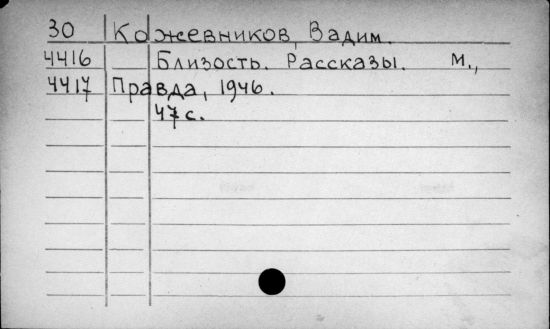 30 Кожевников, Вадим.
4416 Близость. Рассказы. М.,
4417 Правда, 1946.
47 с.